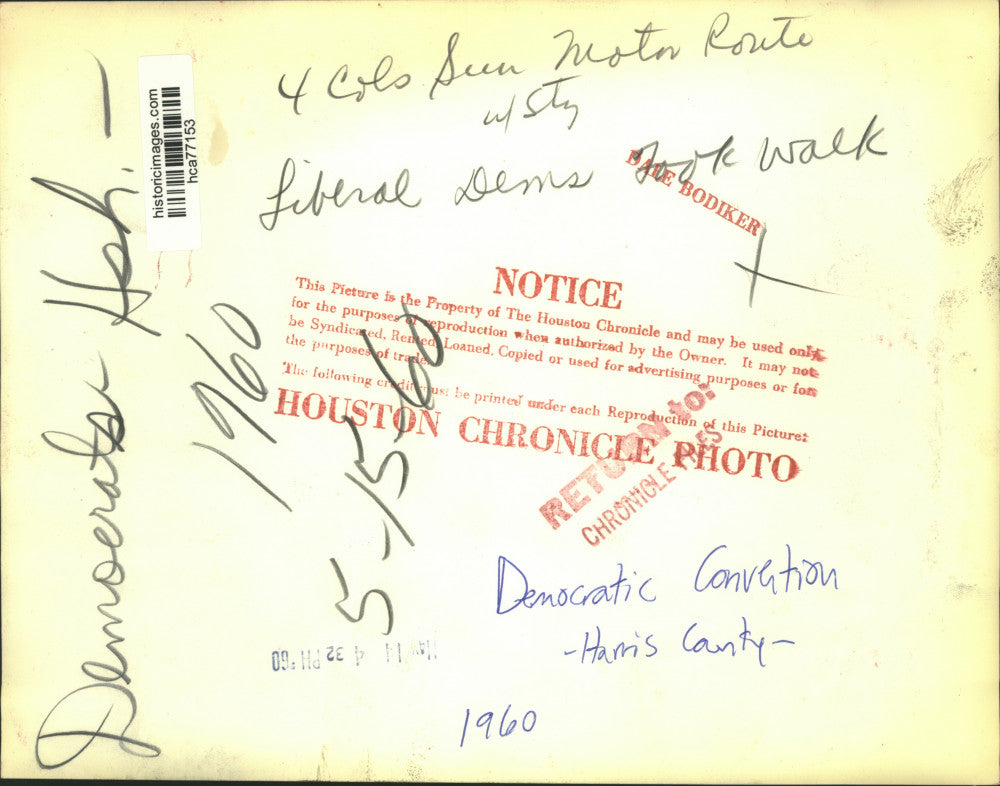 4 Cols Sun Motor Route
w/ Sty
Liberal Dems Took Walk
DALE BODIKER
historicimages.com
hca77153
Democrats Hsh. —
1960
5-15-60
NOTICE
This Picture is the Property of The Houston Chronicle and may be used only
for the purposes of reproduction when authorized by the Owner. It may not
be Syndicated, Rented, Loaned, Copied or used for advertising purposes or for
the purposes of trade.
The following credit must be printed under each Reproduction of this Picture:
HOUSTON CHRONICLE PHOTO
RETURN to:
CHRONICLE FILES
Democratic Convention
- Harris County -
1960
MAY 14 4 32 PM '60